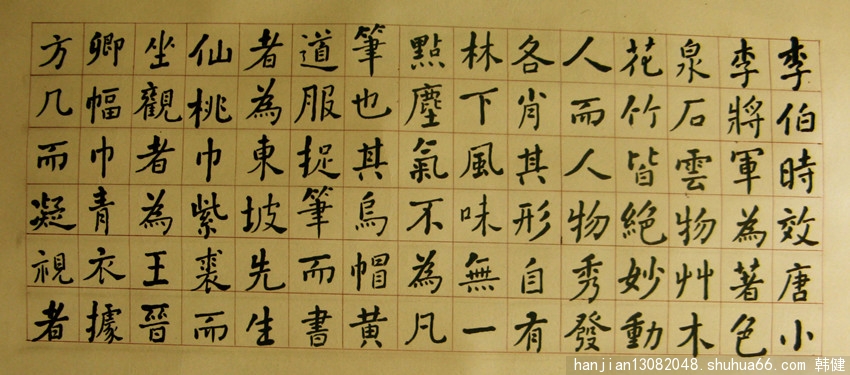 李伯時效唐小
李將軍為著色
泉石雲物艸木
花竹皆絕妙動
人而人物秀發
各肖其形自有
林下風味無一
點塵氣不為凡
筆也其烏帽黃
道服捉筆而書
者為東坡先生
仙桃巾紫裘而
坐觀者為王晉
卿幅巾青衣據
方几而凝視者
hanjian13082048.shuhua66.com 韩健